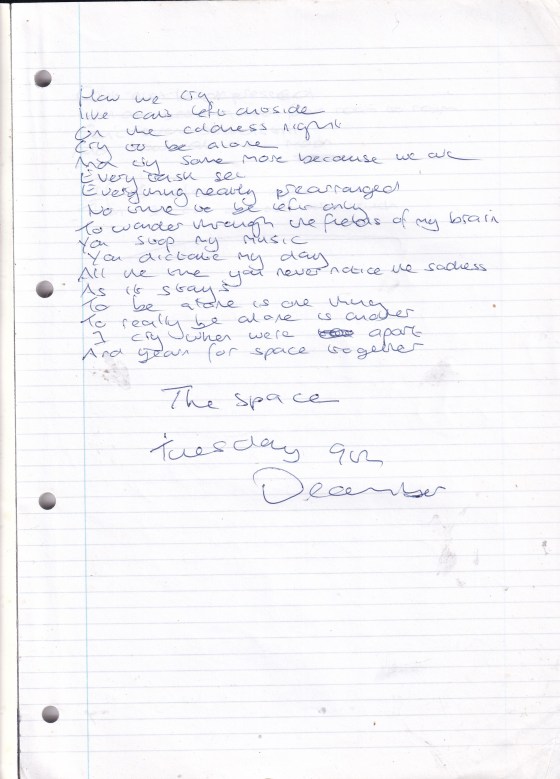 How we cry
like cats left outside
On the coldness night
Cry to be alone
And cry some more because we are
Every task set
Everything neatly prearranged
No time to be left only
To wander through the fields of my brain
You stop my music
You dictate my day
All the time you never notice the sadness
As it stays
To be alone is one thing
To really be alone is another
I cry when were apart
And yearn for space together
The space
Tuesday 9th
December